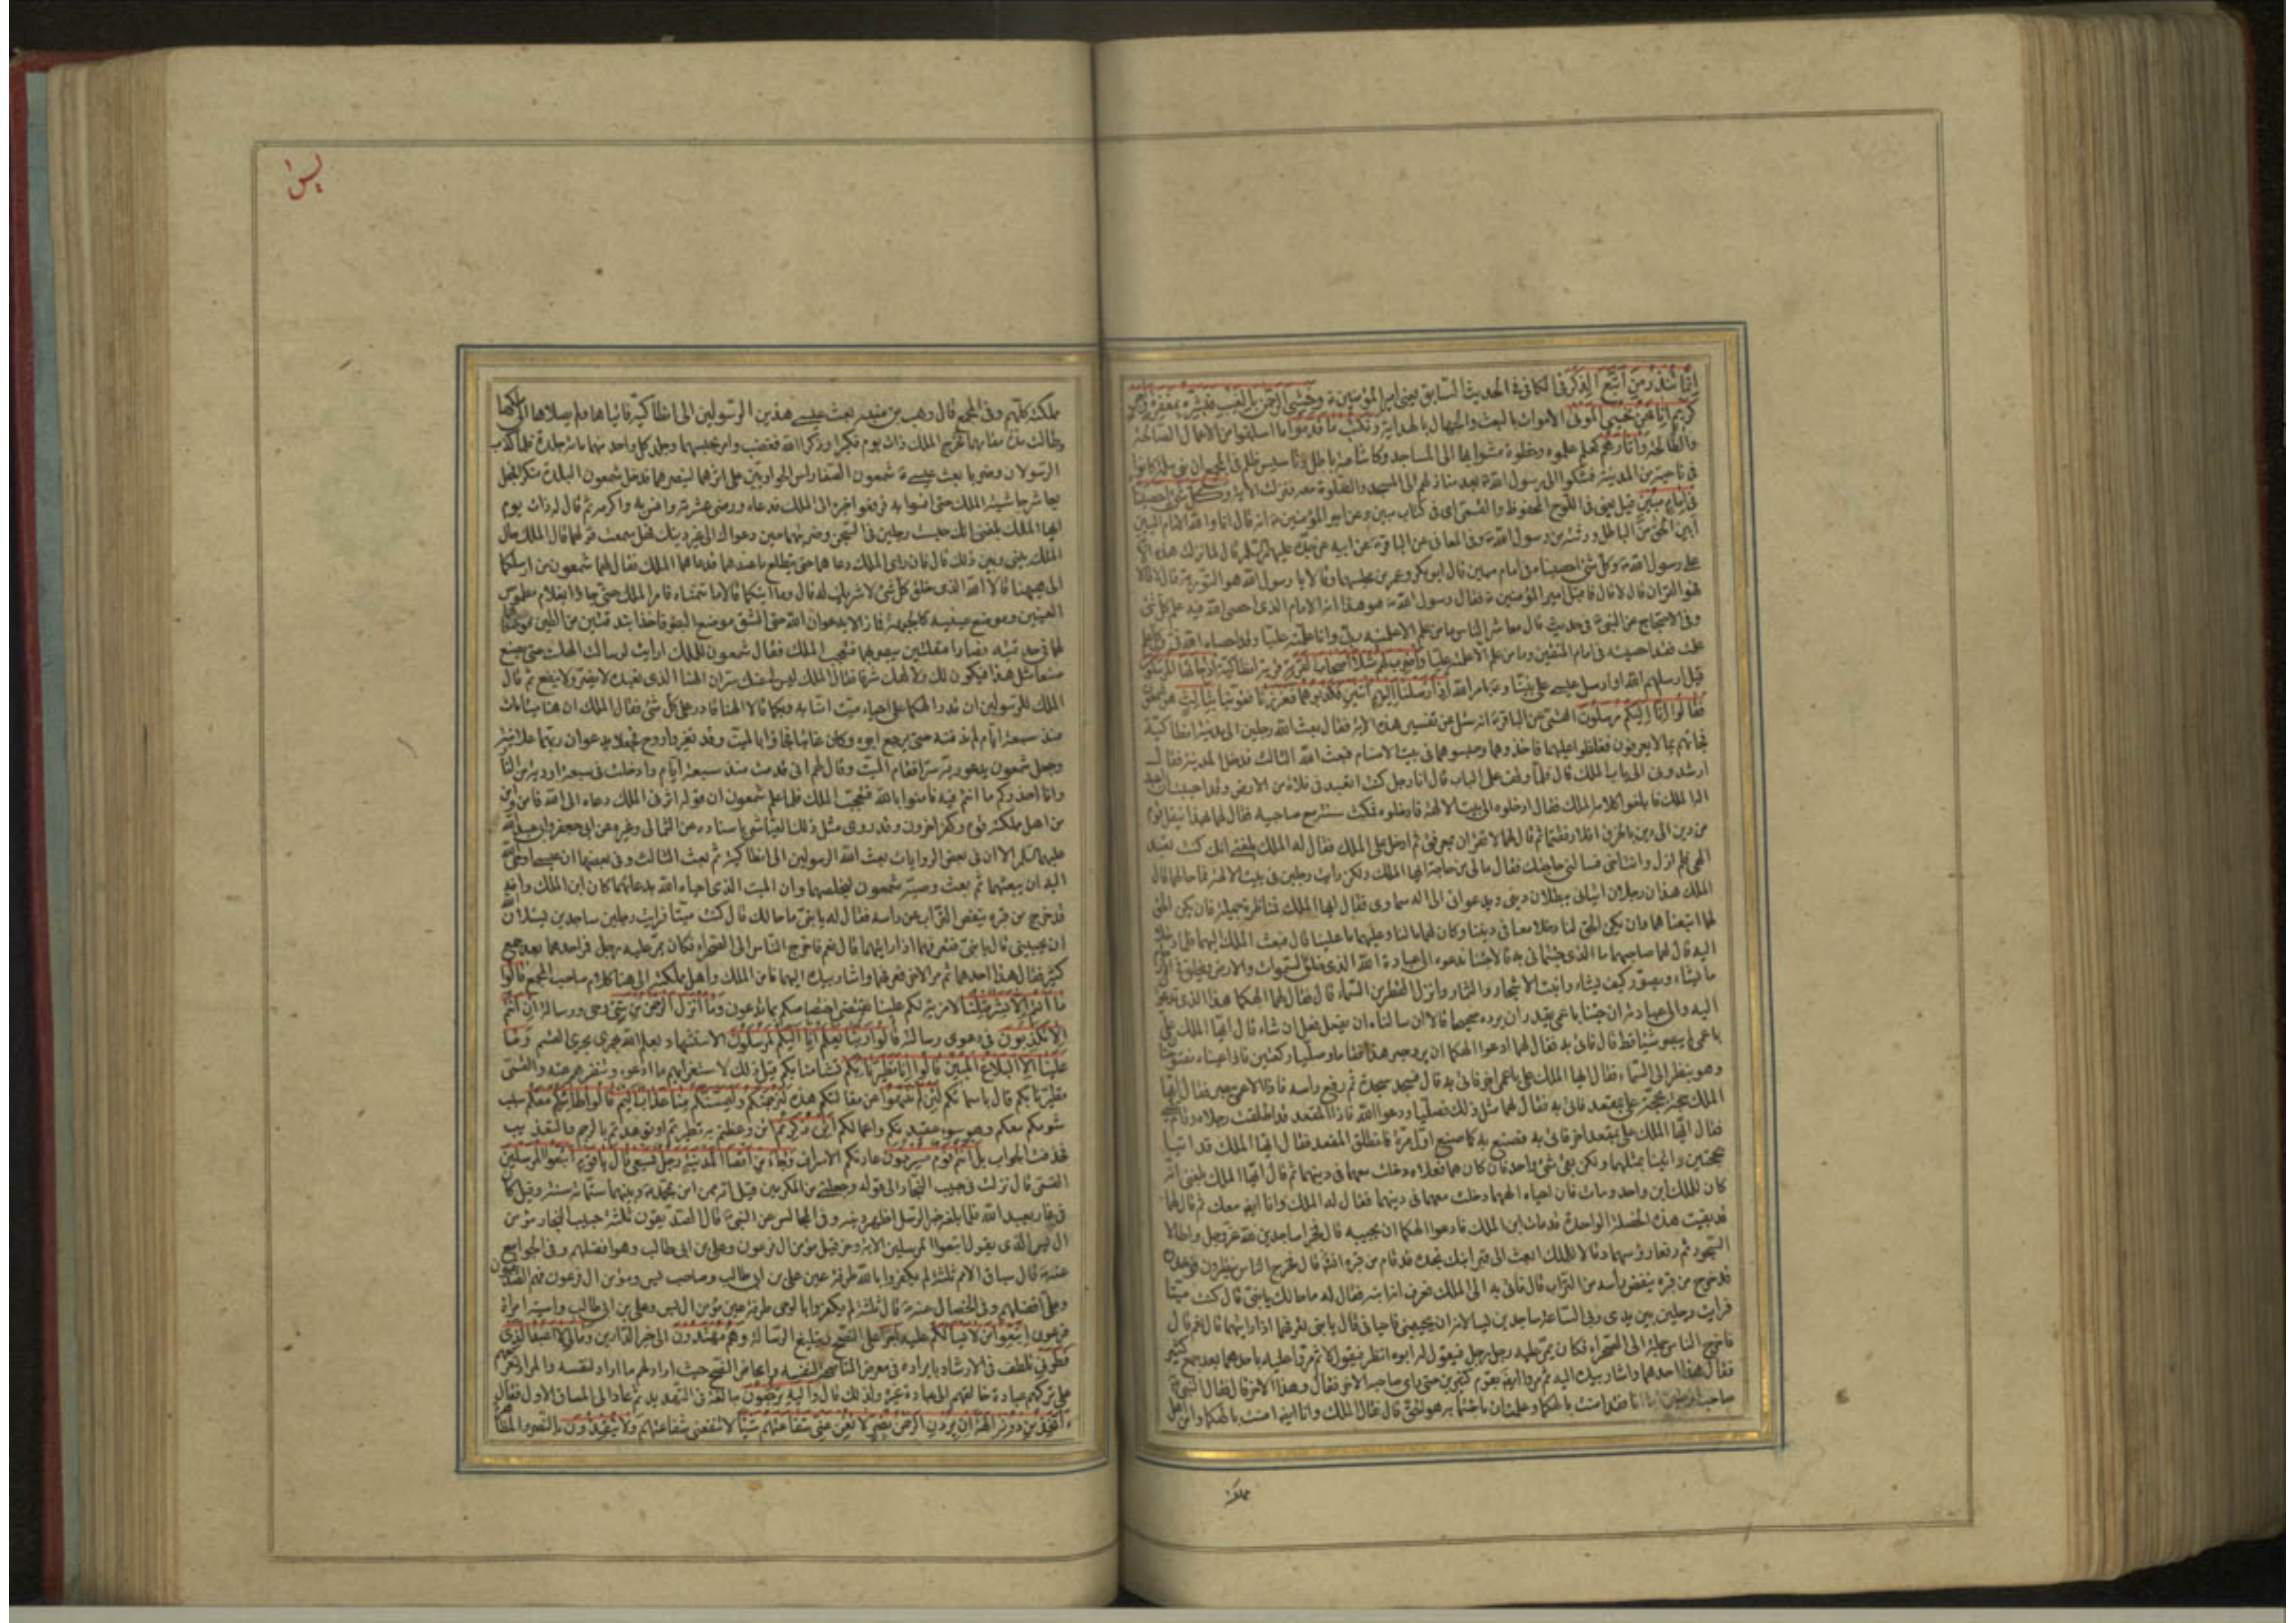 إِنَّمَا تُنْذِرُ مَنِ اتَّبَعَ الذِّكْرَ في الكافي في الحديث السابق يعني امير المؤمنين ع وَخَشِيَ الرَّحْمٰنَ بِالْغَيْبِ فَبَشِّرْهُ بِمَغْفِرَةٍ وَاَجْرٍ
كَرِيمٍ اِنَّا نَحْنُ نُحْيِي الْمَوْتٰى الاموات بالبعث والجهال بالهداية وَنَكْتُبُ مَا قَدَّمُوا ما اسلفوا من الاعمال الصالحة
والطالحة وَآثَارَهُمْ كعلم علموه وخطوة مشوا بها الى المساجد وكاشاعة باطل وتاسيس ظلم في المجمع ان بني سلمة كانوا
في ناحية من المدينة فشكوا الى رسول الله ص بعد منازلهم الى المسجد والصلوة معه فنزلت الاية وَكُلَّ شَيْءٍ اَحْصَيْنَاهُ
فِي اِمَامٍ مُبِينٍ قيل يعني في اللوح المحفوظ والقمي اي في كتاب مبين وعن امير المؤمنين ع انه قال انا والله الامام المبين
ابين الحق من الباطل ورثته من رسول الله ص وفي المعاني عن الباقر ع عن ابيه عن جده عليهم السلم قال لما نزلت هذه الاية
على رسول الله ص وكل شئ احصيناه في امام مبين قام ابو بكر وعمر من مجلسهما وقالا يا رسول الله هو التورية قال لا قالا
فهو القران قال لا قال فاقبل امير المؤمنين ع فقال رسول الله ص هو هذا انه الامام الذي احصى الله فيه علم كل شئ
وفي الاحتجاج عن النبي ص في حديث قال معاشر الناس ما من علم الا علمنيه ربي وانا علمته عليا وقد احصاه الله في وكل علم
علمت فقد احصيته في امام المتقين وما من علم الا علمته عليا وَاضْرِبْ لَهُمْ مَثَلًا اَصْحَابَ الْقَرْيَةِ قرية انطاكية اِذْ جَاءَهَا الْمُرْسَلُونَ
قيل ارسلهم الله او ارسل عيسى على نبينا وع بامر الله اِذْ اَرْسَلْنَا اِلَيْهِمُ اثْنَيْنِ فَكَذَّبُوهُمَا فَعَزَّزْنَا فقوينا بِثَالِثٍ هو شمعون
فَقَالُوا اِنَّا اِلَيْكُمْ مُرْسَلُونَ القمي عن الباقر ع انه سئل عن تفسير هذه الاية فقال بعث الله رجلين الى مدينة انطاكية
فجاءاهم بما لا يعرفون فغلظوا عليهما فاخذوهما وحبسوهما في بيت الاصنام فبعث الله الثالث فدخل المدينة فقال
ارشدوني الى باب الملك قال فلما وقف على الباب قال انا رجل كنت اتعبد في فلاة من الارض وقد احببت ان اعبد
اله الملك فابلغوا كلامه الملك فقال ادخلوه الى بيت الالهة فادخلوه فمكث سنة مع صاحبيه فقال لهما بهذا ينقل قوم
من دين الى دين بالخرق افلا رفقتما ثم قال لهما لا تقران بمعرفتي ثم ادخل على الملك فقال له الملك بلغني انك كنت تعبد
الهي فلم ازل وانت اخي فسلني حاجتك فقال مالي من حاجة ايها الملك ولكن رايت رجلين في بيت الالهة فما حالهما قال
الملك هذان رجلان اتياني ببطلان ديني ويدعواني الى اله سماوي فقال ايها الملك فمناظرة جميلة فان يكن الحق
لهما اتبعناهما وان يكن الحق لنا دخلا معنا في ديننا وكان لهما ما لنا وعليهما ما علينا قال فبعث الملك اليهما فلما دخلا
اليه قال لهما صاحبهما ما الذي جئتما به قالا جئنا ندعو الى عبادة الله الذي خلق السموات والارض ويخلق في الارحام
ما يشاء ويصور كيف يشاء وانبت الاشجار والثمار وانزل القطر من السماء قال فقال لهما الهكما هذا الذي تدعوان
اليه والى عبادته ان جئنا باعمى يقدر ان يرده صحيحا قالا ان سالناه ان يفعل فعل ان شاء قال ايها الملك علي
باعمى لم يبصر شيئا قط قال فاتي به فقال لهما ادعوا الهكما ان يرد بصر هذا فقاما وصليا ركعتين فاذا عيناه مفتوحتان
وهو ينظر الى السماء فقال ايها الملك علي باعمى اخر فاتي به قال فسجد سجدة ثم رفع راسه فاذا الاعمى بصير فقال ايها
الملك حجة بحجة علي بمقعد فاتي به فقال لهما مثل ذلك فصليا ودعوا الله فاذا المقعد قد اطلقت رجلاه وقام يمشي
فقال ايها الملك علي بمقعد اخر فاتي به فصنع به كما صنع اول مرة فانطلق المقعد فقال ايها الملك قد اتيا
بحجتين واتينا بمثلهما ولكن بقي شئ واحد فان كان هما فعلاه دخلت معهما في دينهما ثم قال ايها الملك بلغني انه
كان للملك ابن واحد ومات فان احياه الههما دخلت معهما في دينهما فقال له الملك وانا ايضا معك ثم قال لهما
قد بقيت هذه الخصلة الواحدة قد مات ابن الملك فادعوا الهكما ان يحييه قال فخرا ساجدين لله عز وجل واطالا
السجود ثم رفعا رؤسهما وقالا للملك ابعث الى قبر ابنك تجده قد قام من قبره انشاء الله قال فخرج الناس ينظرون فوجدوه
قد خرج من قبره ينفض راسه من التراب قال فاتي به الى الملك فعرف انه ابنه فقال له ما حالك يا بني قال كنت ميتا
فرايت رجلين بين يدي ربي الساعة ساجدين يسالانه ان يحييني فاحياني قال يا بني تعرفهما اذا رايتهما قال نعم قال
فاخرج الناس جملة الى الصحراء فكان يمر عليه رجل رجل فيقول له ابوه انظر فيقول لا ثم مروا عليه باحدهما بعد جمع كثير
فقال هذا احدهما واشار بيده اليه ثم مروا ايضا بقوم كثيرين حتى راى صاحبه الاخر فقال وهذا الاخر قال فقال النبي
صاحب الرجلين اما انا فقد امنت بالهكما وعلمت ان ما جئتما به هو الحق قال فقال الملك وانا ايضا امنت بالهكما وامن اهل
مملكته
يس
مملكته كلهم وفي المجمع قال وهب بن منبه بعث عيسى هذين الرسولين الى انطاكية فاتياها ولم يصلا الى ملكها
وطالت مدة مقامهما فخرج الملك ذات يوم فكبرا وذكرا الله فغضب وامر بحبسهما وجلد كل واحد منهما مائة جلدة فلما كذب
الرسولان وضربا بعث عيسى ع شمعون الصفا راس الحواريين على اثرهما لينصرهما فدخل شمعون البلدة متنكرا فجعل
يعاشر حاشية الملك حتى انسوا به فرفعوا خبره الى الملك فدعاه ورضي عشرته وانس به واكرمه ثم قال له ذات يوم
ايها الملك بلغني انك حبست رجلين في السجن وضربتهما حين دعواك الى غير دينك فهل سمعت قولهما قال الملك حال
الملك بيني وبين ذلك قال فان راى الملك دعاهما حتى يتطلع ما عندهما فدعاهما الملك فقال لهما شمعون من ارسلكما
الى ههنا قالا الله الذي خلق كل شئ لا شريك له قال وما ايتكما قالا ما تتمناه فامر الملك حتى جاؤا بغلام مطموس
العينين وموضع عينيه كالجبهة فما زالا يدعوان الله حتى انشق موضع البصر فاخذا بندقتين من الطين فوضعاهما
في حدقتيه فصارا مقلتين يبصر بهما فتعجب الملك فقال شمعون للملك ارايت لو سالت الهك حتى يصنع
صنعا مثل هذا فيكون لك ولالهك شرفا فقال الملك ليس لي عنك سر ان الهنا الذي نعبده لا يضر ولا ينفع ثم قال
الملك للرسولين ان قدر الهكما على احياء ميت امنا به وبكما قالا الهنا قادر على كل شئ فقال الملك ان هنا ميتا مات
منذ سبعة ايام لم ندفنه حتى يرجع ابوه وكان غائبا فجاؤا بالميت وقد تغير واروح فجعلا يدعوان ربهما علانية
وجعل شمعون يدعو ربه سرا فقام الميت وقال لهم اني قد مت منذ سبعة ايام وادخلت في سبعة اودية من النار
وانا احذركم ما انتم فيه فامنوا بالله فتعجب الملك فلما علم شمعون ان قوله اثر في الملك دعاه الى الله فامن وامن
من اهل مملكته قوم وكفر اخرون وقد روى مثل ذلك العياشي باسناده عن الثمالي وغيره عن ابي جعفر وابي عبد الله
عليهما السلم الا ان في بعض الروايات بعث الله الرسولين الى انطاكية ثم بعث الثالث وفي بعضها ان عيسى اوحى الله
اليه ان يبعثهما ثم بعث وصيه شمعون ليخلصهما وان الميت الذي احياه الله بدعائهما كان ابن الملك وانه
قد خرج من قبره ينفض التراب عن راسه فقال له يا بني ما حالك قال كنت ميتا فرايت رجلين ساجدين يسئلان الله
ان يحييني قال يا بني فتعرفهما اذا رايتهما قال نعم فاخرج الناس الى الصحراء فكان يمر عليه رجل رجل فمر احدهما بعد جمع
كثير فقال هذا احدهما ثم مر الاخر فعرفهما واشار بيده اليهما فامن الملك واهل مملكته الى هنا كلام صاحب المجمع قَالُوا
مَا اَنْتُمْ اِلَّا بَشَرٌ مِثْلُنَا لا مزية لكم علينا تقتضي اختصاصكم بما تدعون وَمَا اَنْزَلَ الرَّحْمٰنُ مِنْ شَيْءٍ وحي ورسالة اِنْ اَنْتُمْ
اِلَّا تَكْذِبُونَ في دعوى رسالته قَالُوا رَبُّنَا يَعْلَمُ اِنَّا اِلَيْكُمْ لَمُرْسَلُونَ الاستشهاد بعلم الله يجري مجرى القسم وَمَا
عَلَيْنَا اِلَّا الْبَلَاغُ الْمُبِينُ قَالُوا اِنَّا تَطَيَّرْنَا بِكُمْ تشأمنا بكم قيل ذلك لاستغرابهم ما ادعوه وتنفرهم عنه والقمي
تطيرنا بكم قال باسمائكم لَئِنْ لَمْ تَنْتَهُوا عن مقالتكم هذه لَنَرْجُمَنَّكُمْ وَلَيَمَسَّنَّكُمْ مِنَّا عَذَابٌ اَلِيمٌ قَالُوا طَائِرُكُمْ مَعَكُمْ سبب
شومكم معكم وهو سوء عقيدتكم واعمالكم اَئِنْ ذُكِّرْتُمْ ائن وعظتم به تطيرتم او توعدتم بالرجم والتعذيب
فحذف الجواب بَلْ اَنْتُمْ قَوْمٌ مُسْرِفُونَ عادتكم الاسراف وَجَاءَ مِنْ اَقْصَا الْمَدِينَةِ رَجُلٌ يَسْعٰى قَالَ يَا قَوْمِ اتَّبِعُوا الْمُرْسَلِينَ
القمي قال نزلت في حبيب النجار الى قوله وجعلني من المكرمين قيل انه ممن امن بمحمد ص وبينهما ستمائة سنة وقيل كان
في غار يعبد الله فلما بلغه خبر الرسل اظهر دينه وفي المجالس عن النبي ص قال الصديقون ثلثة حبيب النجار مؤمن
ال يس الذي يقول اتبعوا المرسلين الاية وحزقيل مؤمن ال فرعون وعلي بن ابي طالب وهو افضلهم وفي الجوامع
عنه ص قال سباق الامم ثلثة لم يكفروا بالله طرفة عين علي بن ابي طالب وصاحب يس ومؤمن ال فرعون فهم الصديقون
وعلي افضلهم وفي الخصال عنه ص قال ثلثة لم يكفروا بالوحي طرفة عين مؤمن ال يس وعلي بن ابي طالب واسية امراة
فرعون اِتَّبِعُوا مَنْ لَا يَسْئَلُكُمْ عَلَيْهِ اَجْرًا على النصح وتبليغ الرسالة وَهُمْ مُهْتَدُونَ الى خير الدارين وَمَالِيَ لَا اَعْبُدُ الَّذِي
فَطَرَنِي تلطف في الارشاد بايراده في معرض المناصحة لنفسه وامحاض النصح حيث اراد لهم ما اراد لنفسه والمراد تقريعهم
على تركهم عبادة خالقهم الى عبادة غيره ولذلك قال وَاِلَيْهِ تُرْجَعُونَ مبالغة في التهديد ثم عاد الى المساق الاول فقال
ءَاَتَّخِذُ مِنْ دُونِهِ اٰلِهَةً اِنْ يُرِدْنِ الرَّحْمٰنُ بِضُرٍّ لَا تُغْنِ عَنِّي شَفَاعَتُهُمْ شَيْئًا لا تنفعني شفاعتهم وَلَا يُنْقِذُونِ بالنصر والمظاهرة